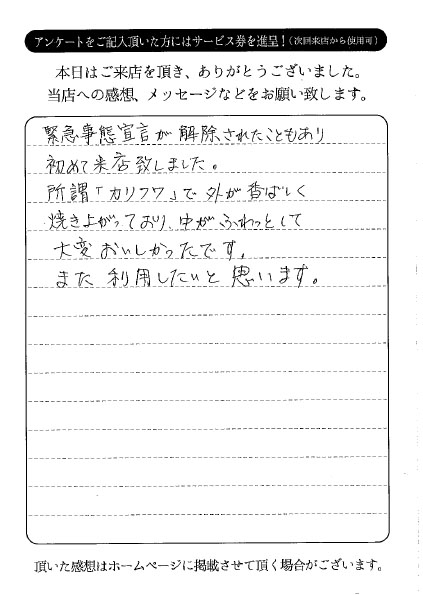 アンケートをご記入頂いた方にはサービス券を進呈！（次回来店から使用可）
本日はご来店を頂き、ありがとうございました。
当店への感想、メッセージなどをお願い致します。
緊急事態宣言が解除されたこともあり
初めて来店致しました。
所謂「カリフワ」で外が香ばしく
焼き上がっており、中がふわっとして
大変おいしかったです。
また利用したいと思います。
頂いた感想はホームページに掲載させて頂く場合がございます。